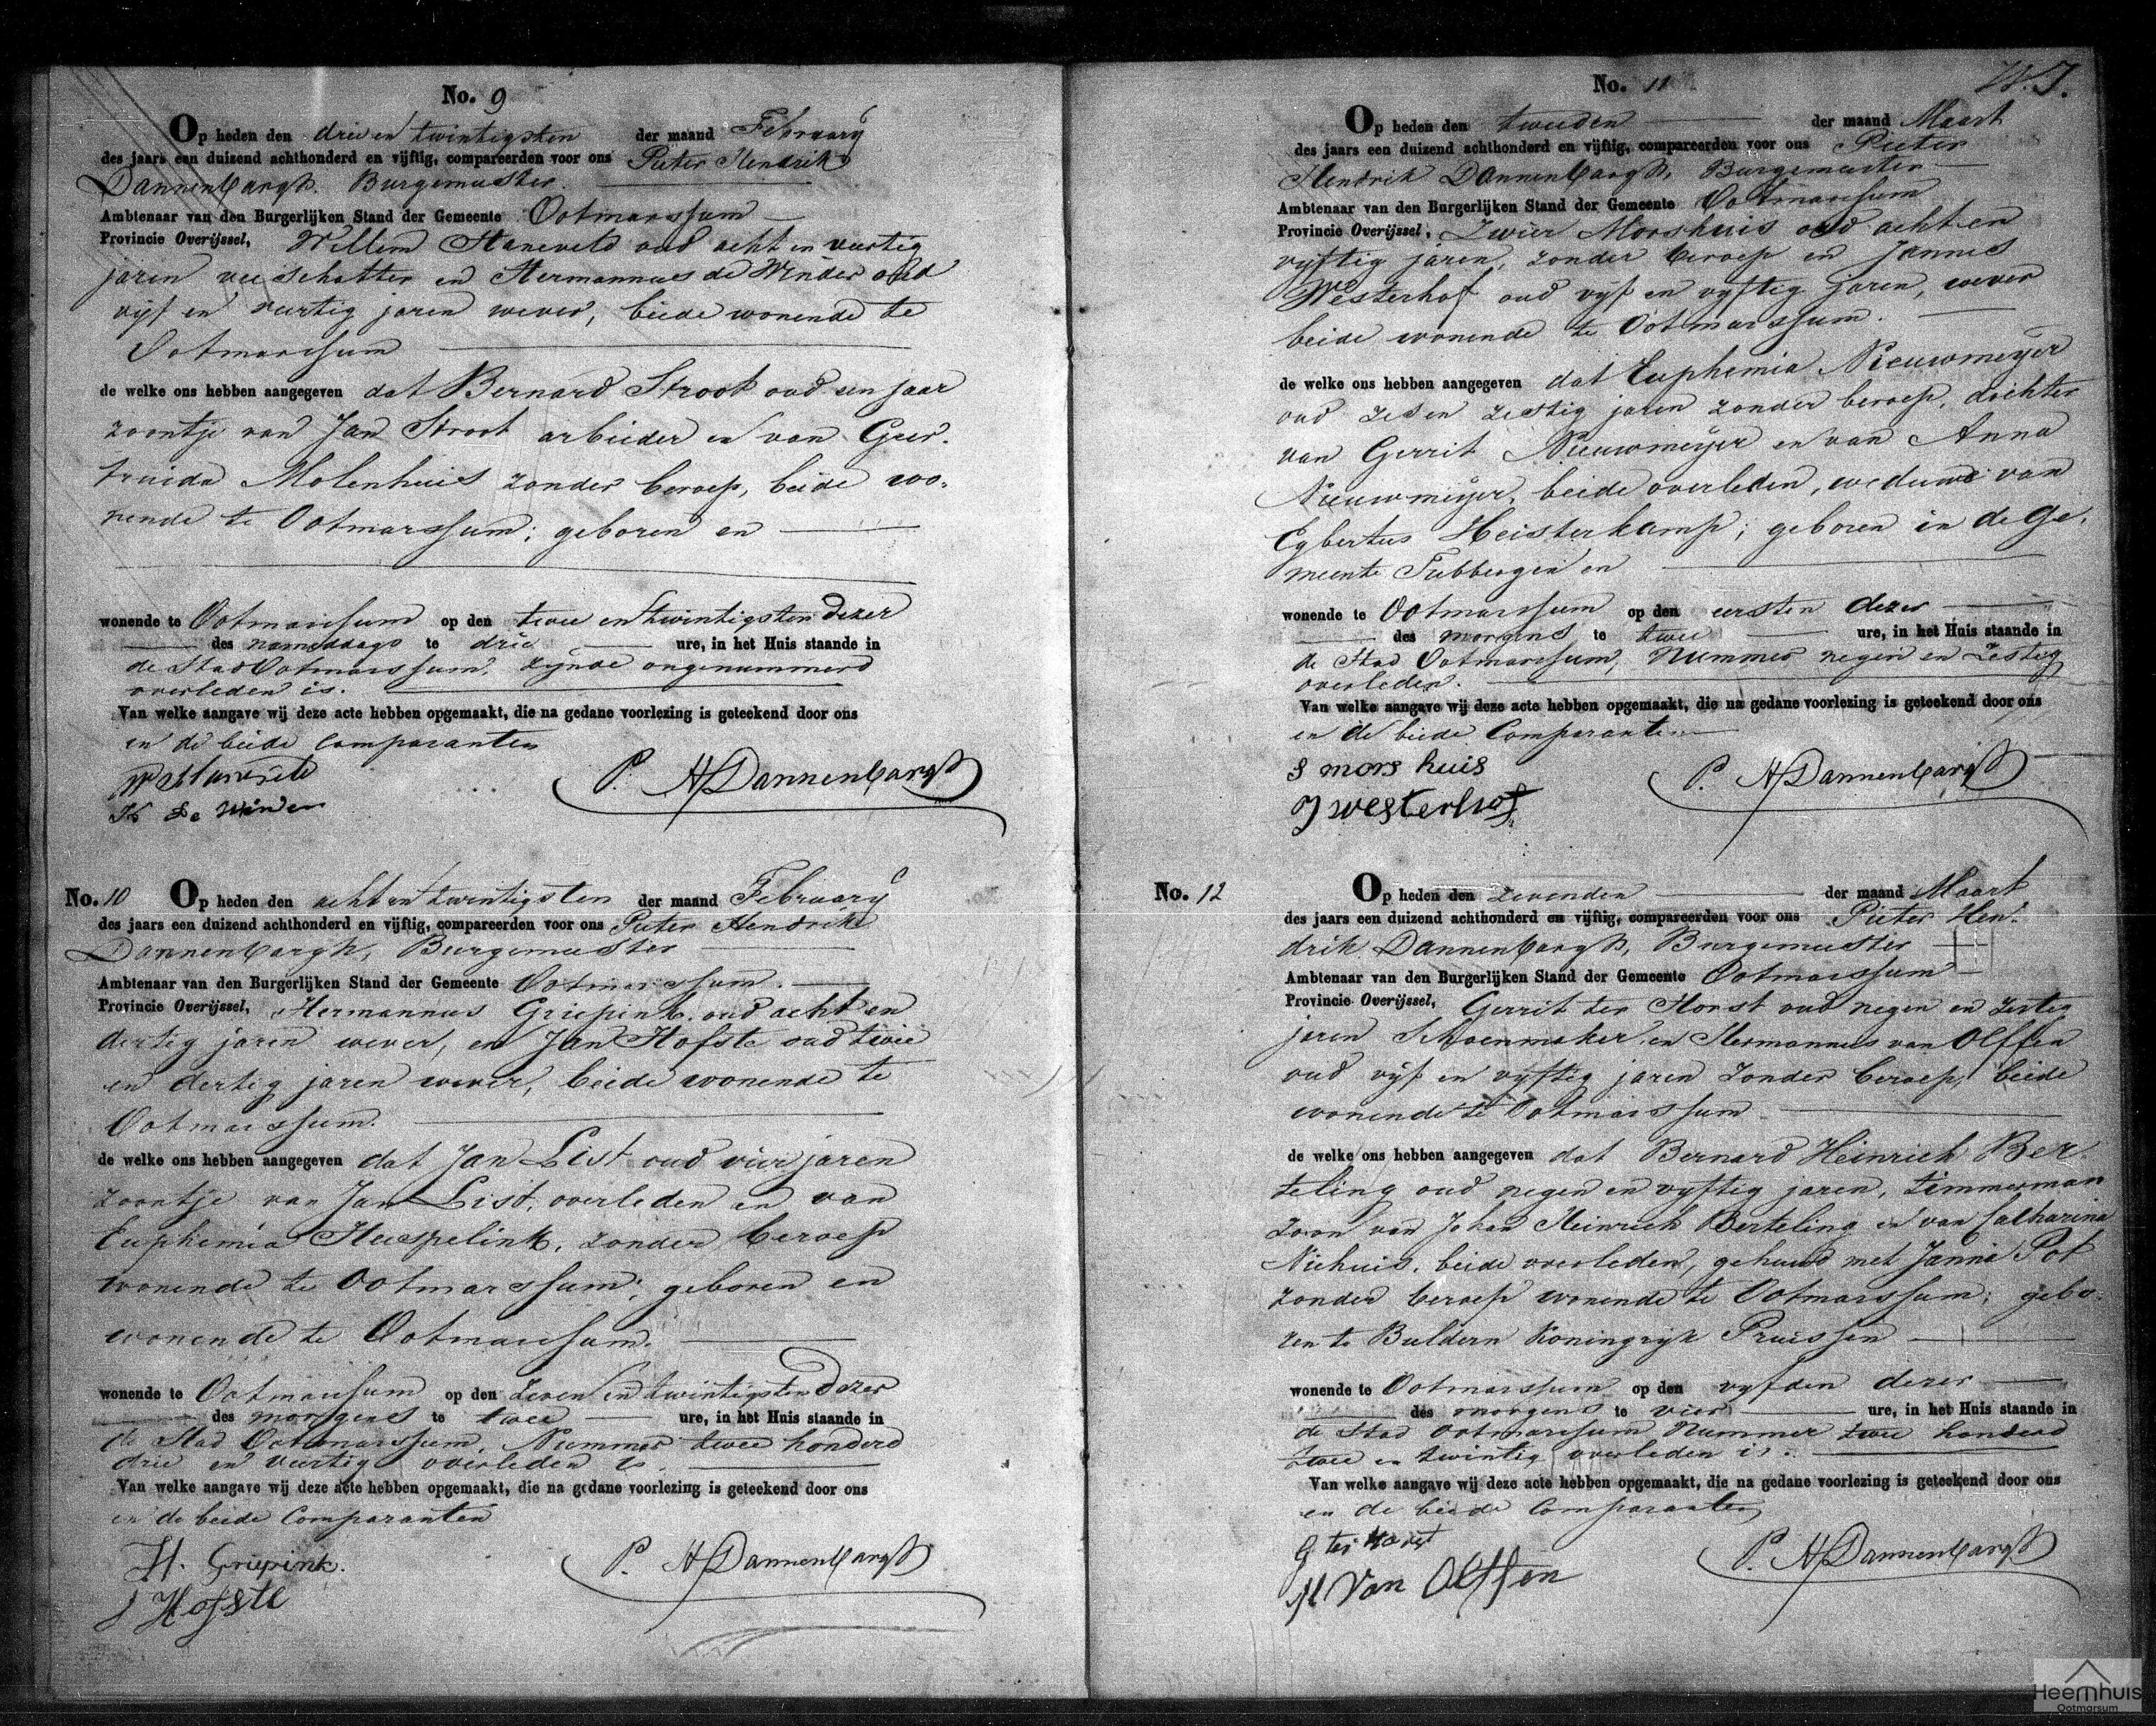 No. 9
Op heden den drie en twintigsten der maand February
des jaars een duizend achthonderd en vijftig, compareerden voor ons Pieter Hendrik
Dannenbargh, Burgemeester
Ambtenaar van den Burgerlijken Stand der Gemeente Ootmarssum
Provincie Overijssel, Willem oud acht en veertig
jaren veeschatter en Hermannus de Winder oud
vijf en veertig jaren wever, beide wonende te
Ootmarssum
de welke ons hebben aangegeven dat Bernard Stroot oud een jaar
zoontje van Jan Stroot arbeider en van Geer-
truida Molenhuis zonder beroep, beide wo-
nende te Ootmarssum; geboren en
wonende te Ootmarssum op den twee en twintigsten dezer
des namiddags te drie ure, in het Huis staande in
de Stad Ootmarssum, zijnde ongenummerd
overleden is.
Van welke aangave wij deze acte hebben opgemaakt, die na gedane voorlezing is geteekend door ons
en de beide Comparanten
P. H Dannenbargh
H de Winder
No. 10 Op heden den acht en twintigsten der maand February
des jaars een duizend achthonderd en vijftig, compareerden voor ons Pieter Hendrik
Dannenbargh, Burgemeester
Ambtenaar van den Burgerlijken Stand der Gemeente Ootmarssum.
Provincie Overijssel, Hermannus Griepink, oud acht en
dertig jaren wever, en Jan Hofste oud twee
en dertig jaren wever, beide wonende te
Ootmarssum.
de welke ons hebben aangegeven dat Jan List oud vier jaren
zoontje van Jan List, overleden en van
Euphemia Heuspelink, zonder beroep
wonende te Ootmarssum; geboren en
wonende te Ootmarssum.
wonende te Ootmarssum op den zeven en twintigsten dezer
des morgens te twee ure, in het Huis staande in
de Stad Ootmarssum, Nummer twee honderd
drie en veertig overleden is.
Van welke aangave wij deze acte hebben opgemaakt, die na gedane voorlezing is geteekend door ons
en de beide Comparanten
H. Griepink.
P. H Dannenbargh
J Hofste
No. 11
Op heden den tweeden der maand Maart
des jaars een duizend achthonderd en vijftig, compareerden voor ons Pieter
Hendrik Dannenbargh, Burgemeester
Ambtenaar van den Burgerlijken Stand der Gemeente Ootmarssum
Provincie Overijssel, Zwier Morshuis oud acht en
vijftig jaren, zonder beroep en Jannes
Westerhof oud vijf en vijftig jaren, wever
beide wonende te Ootmarssum.
de welke ons hebben aangegeven dat Euphemia Nieuwmeijer
oud zes en zestig jaren zonder beroep, dochter
van Gerrit Nieuwmeijer en van Anna
Nieuwmeijer, beide overleden, weduwe van
Egbertus Heisterkamp; geboren in de Ge-
meente Tubbergen en
wonende te Ootmarssum op den eersten dezer
des morgens te twee ure, in het Huis staande in
de Stad Ootmarssum, Nummer negen en zestig
overleden.
Van welke aangave wij deze acte hebben opgemaakt, die na gedane voorlezing is geteekend door ons
en de beide Comparanten
S mors huis
P. H Dannenbargh
J westerhof
No. 12 Op heden den zevenden der maand Maart
des jaars een duizend achthonderd en vijftig, compareerden voor ons Pieter Hen-
drik Dannenbargh, Burgemeester
Ambtenaar van den Burgerlijken Stand der Gemeente Ootmarssum
Provincie Overijssel, Gerrit ter Horst oud negen en zestig
jaren Schoenmaker en Hermannus van Olffen
oud vijf en vijftig jaren zonder beroep, beide
wonende te Ootmarssum
de welke ons hebben aangegeven dat Bernard Heinrich Ber-
teling oud negen en vijftig jaren, timmerman
zoon van Johan Heinrich Berteling en van Catharina
Niehuis, beide overleden, gehuwd met Janna Pot
zonder beroep wonende te Ootmarssum; gebo-
ren te Buldern Koningrijk Pruissen
wonende te Ootmarssum op den vijfden dezer
des morgens te vier ure, in het Huis staande in
de Stad Ootmarssum Nummer twee honderd
twee en twintig overleden is.
Van welke aangave wij deze acte hebben opgemaakt, die na gedane voorlezing is geteekend door ons
en de beide Comparanten
G ter Horst
P. H Dannenbargh
H Van Olffen
Heemhuis
Ootmarsum